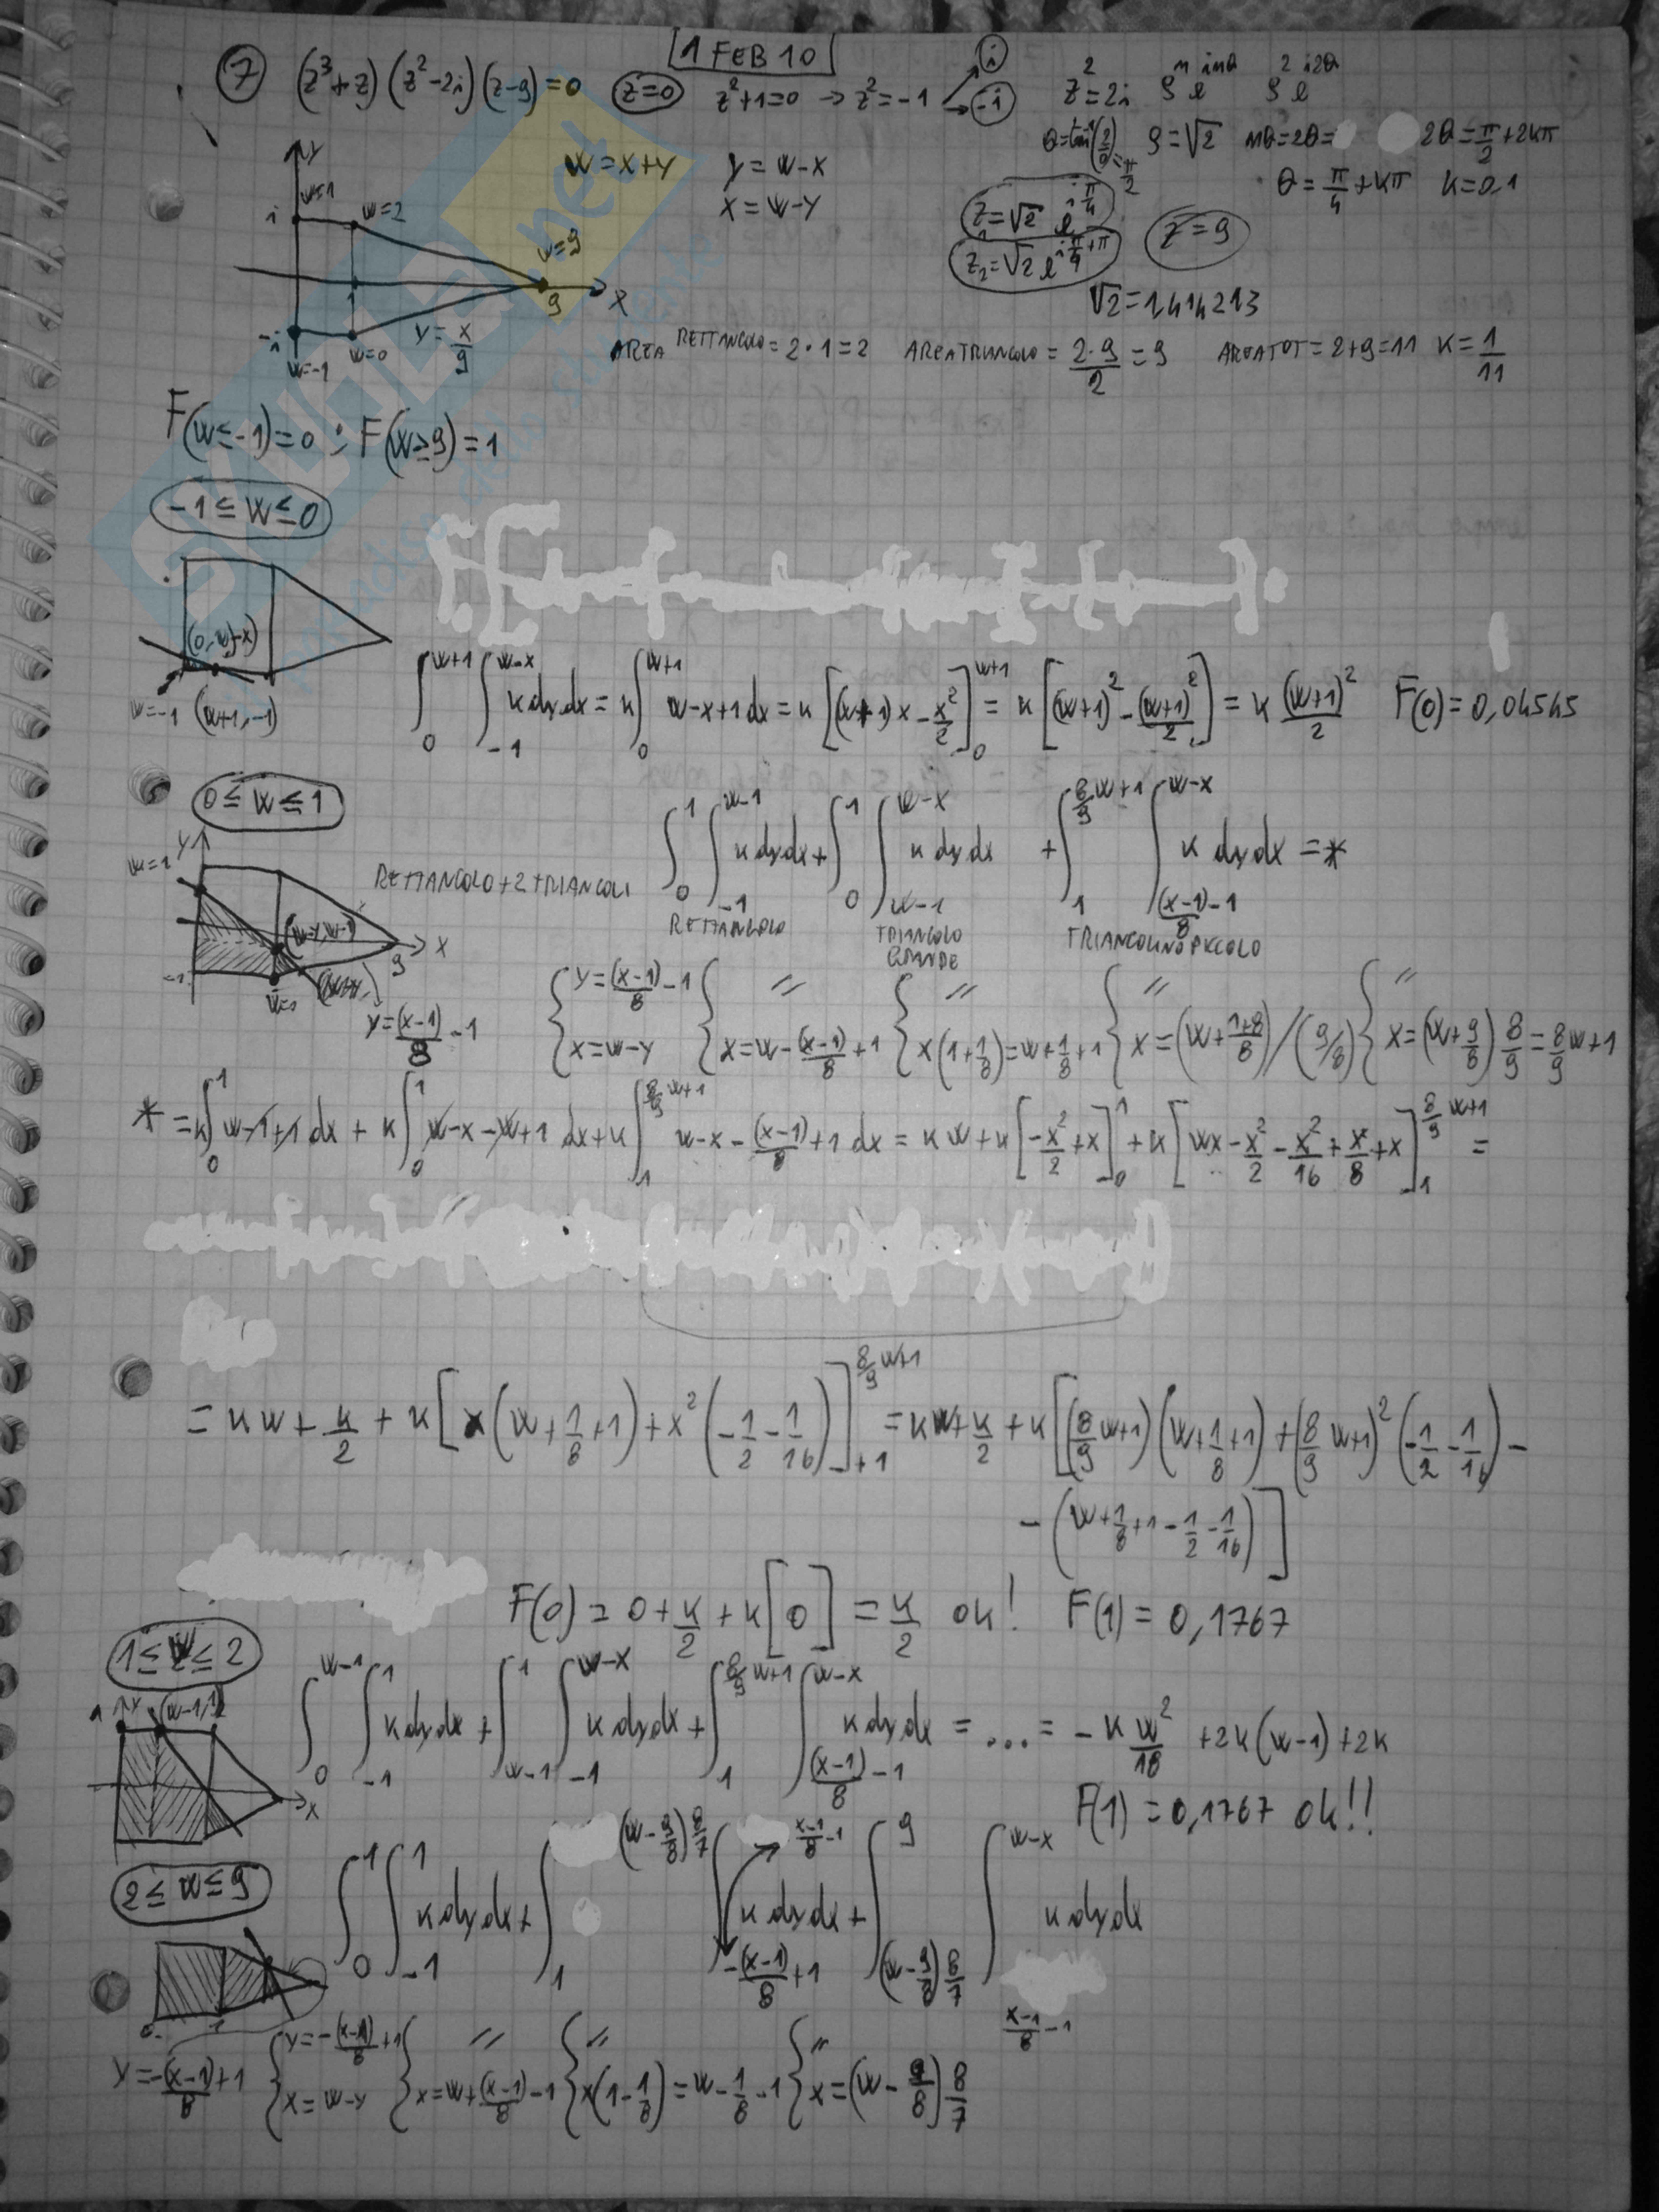 1 FEB 10
7 (z³+z)(z²-2i)(z-9)=0 z=0 z²+1=0 → z²=-1 i -i z²=2i ρⁿe^{inθ} ρ²e^{i2θ}
θ=tan⁻¹(2/0)=π/2 ρ=√2 nθ=2θ= 2θ=π/2+2kπ
θ=π/4+kπ k=0,1
W=x+y y=w-x
x=w-y
z₁=√2 e^{iπ/4} z=9
z₂=√2 e^{iπ/4+π}
√2=1,414213
y w=1 i w=2 w=9 1 9 x -i w=-1 w=0 y=x/9
AREA RETTANGOLO=2·1=2 AREA TRIANGOLO=2·9/2=9 AREA TOT=2+9=11 k=1/11
F(w≤-1)=0 ; F(w≥9)=1
-1≤w≤0
(0,w-x) w=-1 (w+1,-1)
∫₀^{w+1}∫₋₁^{w-x} k dy dx = k∫₀^{w+1} w-x+1 dx = k[(w+1)x-x²/2]₀^{w+1} = k[(w+1)²-(w+1)²/2] = k(w+1)²/2 F(0)=0,04545
0≤w≤1
∫₀¹∫₋₁^{w-1} k dy dx + ∫₀¹∫_{w-1}^{w-x} k dy dx + ∫₁^{8/9w+1}∫_{(x-1)/8-1}^{w-x} k dy dx = *
RETTANGOLO+2 TRIANGOLI
RETTANGOLO TRIANGOLO GRANDE TRIANGOLINO PICCOLO
y w=1 x 9 -1 y=(x-1)/8-1
{y=(x-1)/8-1 x=w-y { // x=w-(x-1)/8+1 { // x(1+1/8)=w+1/8+1 { // x=(w+(1+8)/8)/(9/8) { // x=(w+9/8)8/9=8/9w+1
*=k∫₀¹ w-1+1 dx + k∫₀¹ w-x-w+1 dx + k∫₁^{8/9w+1} w-x-(x-1)/8+1 dx = kw+k[-x²/2+x]₀¹+k[wx-x²/2-x²/16+x/8+x]₁^{8/9w+1} =
= kw+k/2+k[x(w+1/8+1)+x²(-1/2-1/16)]₊₁^{8/9w+1} = kw+k/2+k[(8/9w+1)(w+1/8+1)+(8/9w+1)²(-1/2-1/16)-
-(w+1/8+1-1/2-1/16)]
F(0)=0+k/2+k[0]=k/2 ok! F(1)=0,1767
1≤w≤2
1 y (w-1,1) x
∫₀^{w-1}∫₋₁¹ k dy dx + ∫_{w-1}¹∫₋₁^{w-x} k dy dx + ∫₁^{8/9w+1}∫_{(x-1)/8-1}^{w-x} k dy dx = ... = -kw²/18+2k(w-1)+2k
F(1)=0,1767 ok!!
2≤w≤9
∫₀¹∫₋₁¹ k dy dx + ∫₁^{(w-9/8)8/7}∫_{-(x-1)/8+1}^{(x-1)/8-1} k dy dx + ∫_{(w-9/8)8/7}^9∫_{(x-1)/8-1}^{w-x} k dy dx
y=-(x-1)/8+1 {y=-(x-1)/8+1 x=w-y { // x=w+(x-1)/8-1 { // x(1-1/8)=w-1/8-1 { // x=(w-9/8)8/7